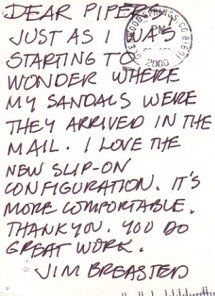 DEAR PIPER,
JUST AS I WAS
STARTING TO
WONDER WHERE
MY SANDALS WERE
THEY ARRIVED IN THE
MAIL. I LOVE THE
NEW SLIP-ON
CONFIGURATION. IT'S
MORE COMFORTABLE.
THANK YOU. YOU DO
GREAT WORK.
JIM BREASTED
2000